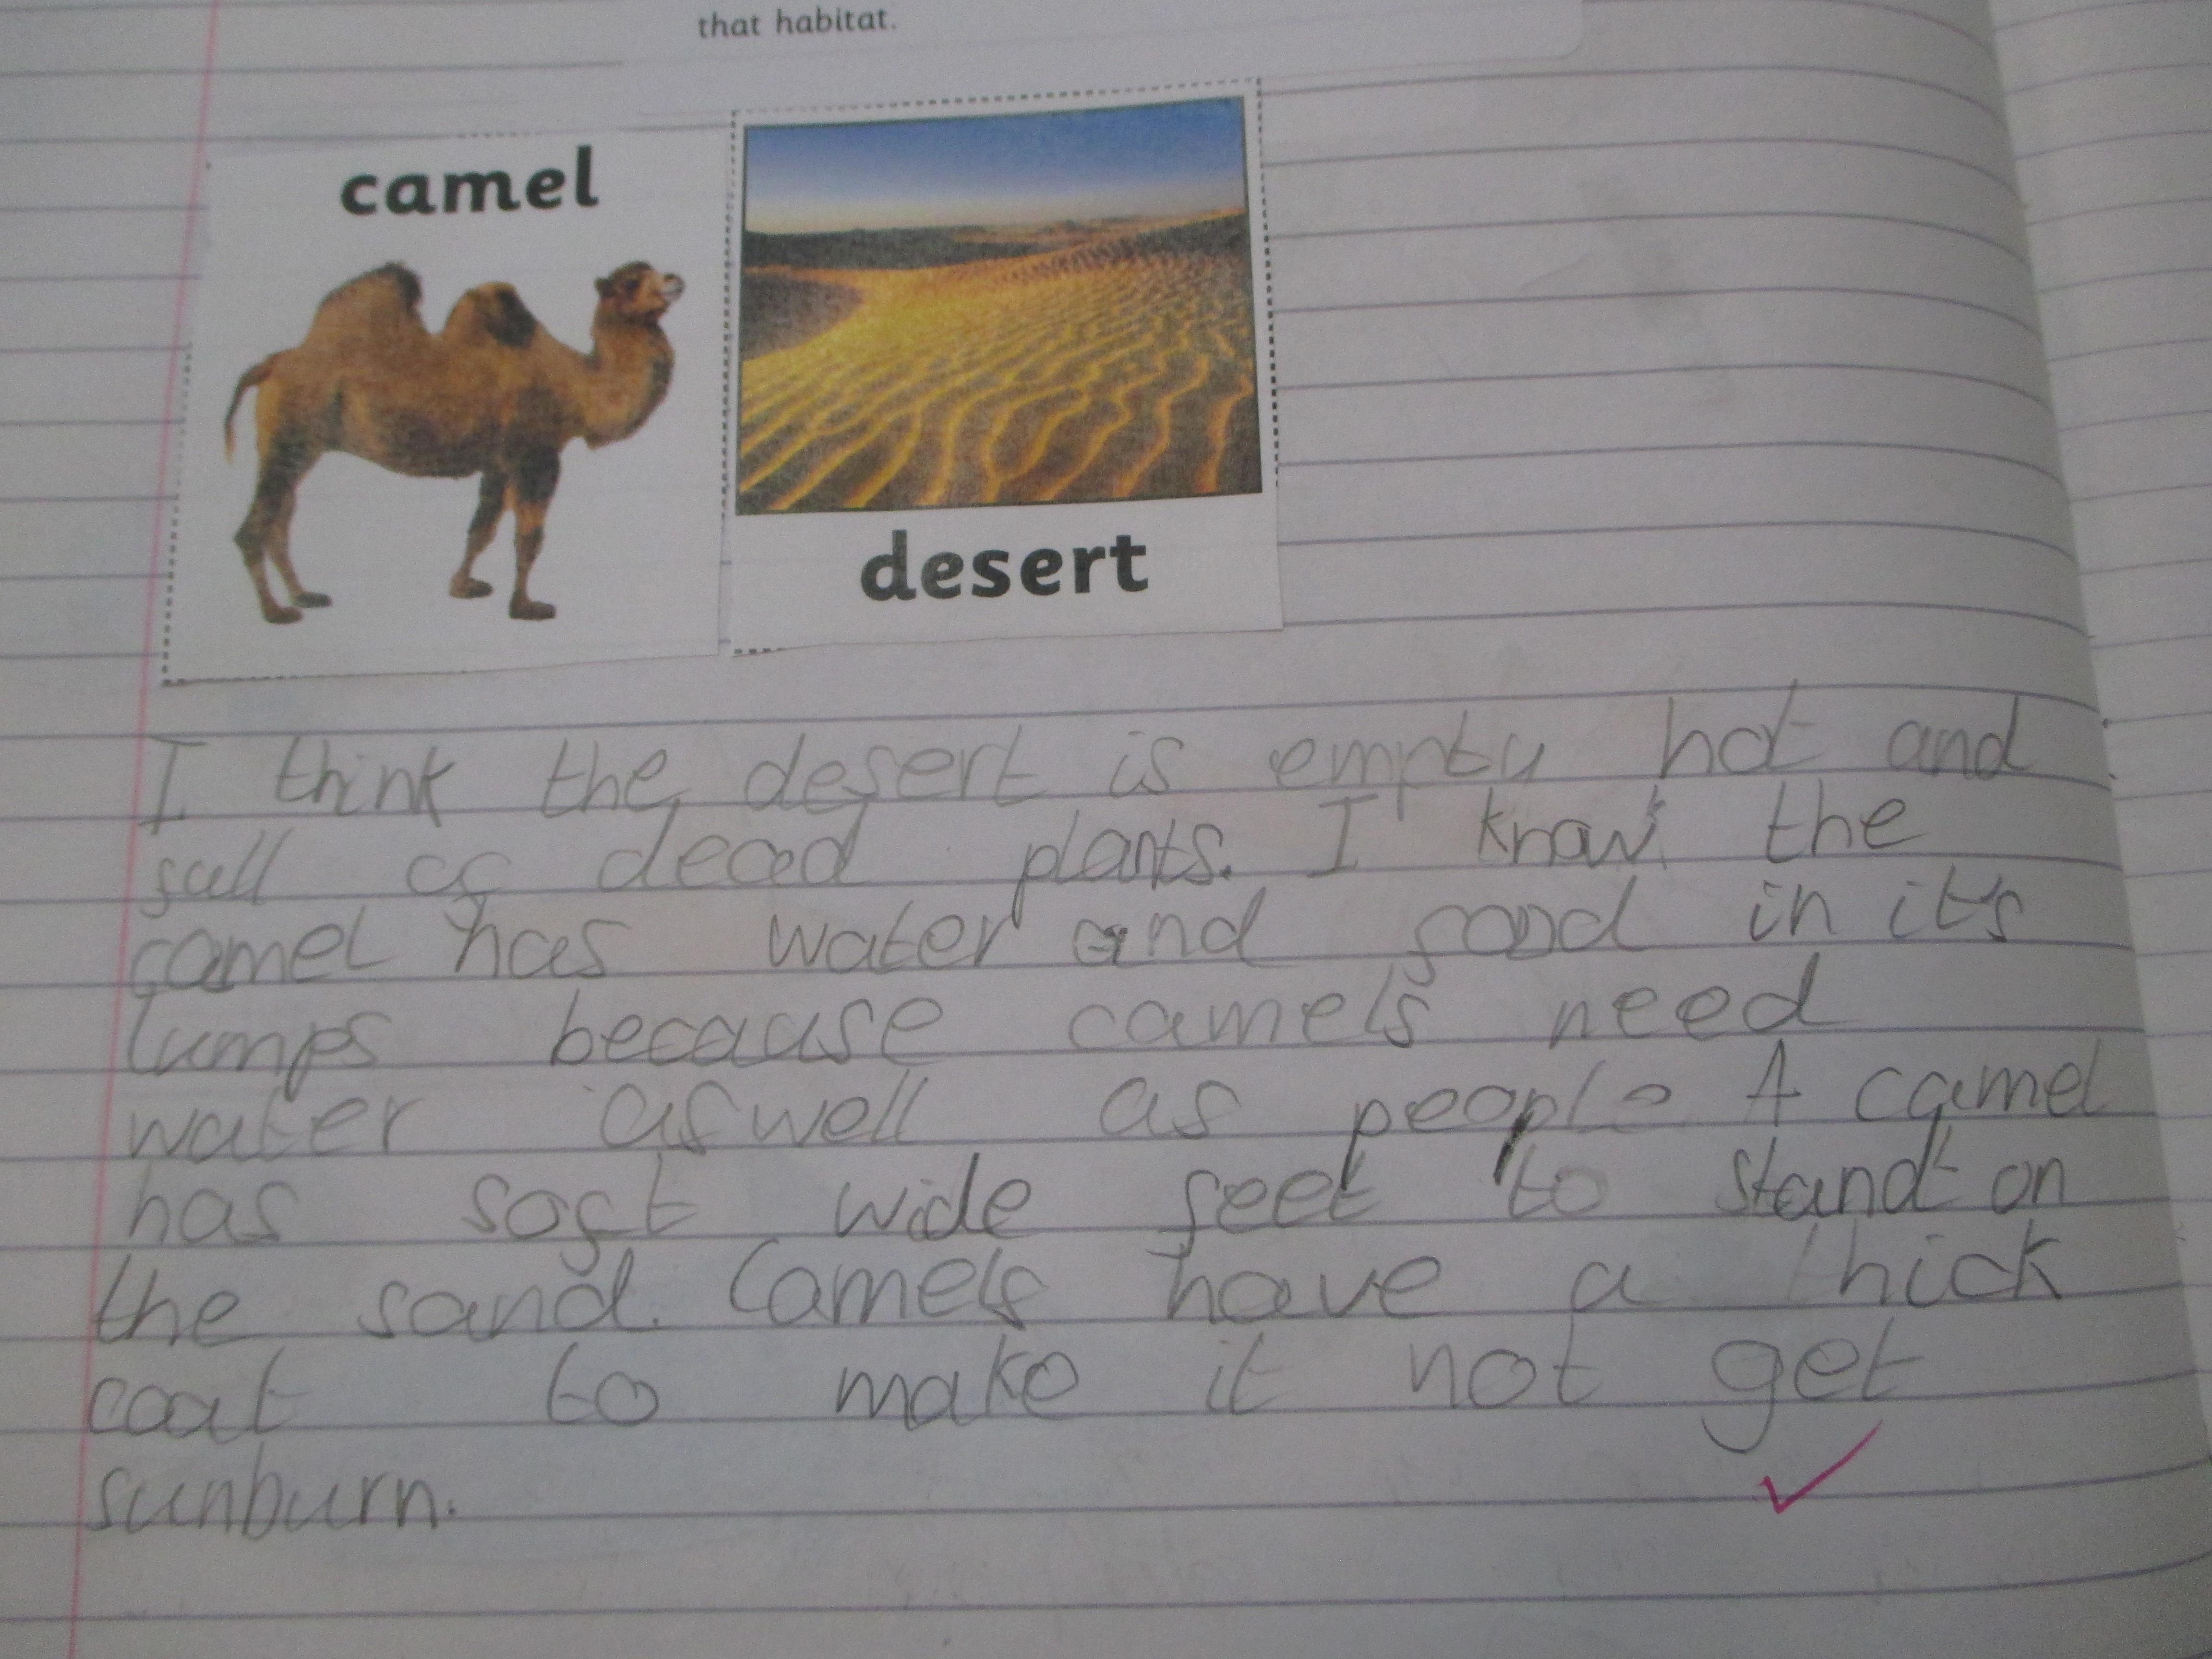 that habitat.
camel
desert
I think the desert is empty hot and
full of dead plants. I know the
camel has water and food in it's
lumps because camels need
water aswell as people A camel
has soft wide feet to stand on
the sand. Camels have a thick
coat to make it not get
sunburn.